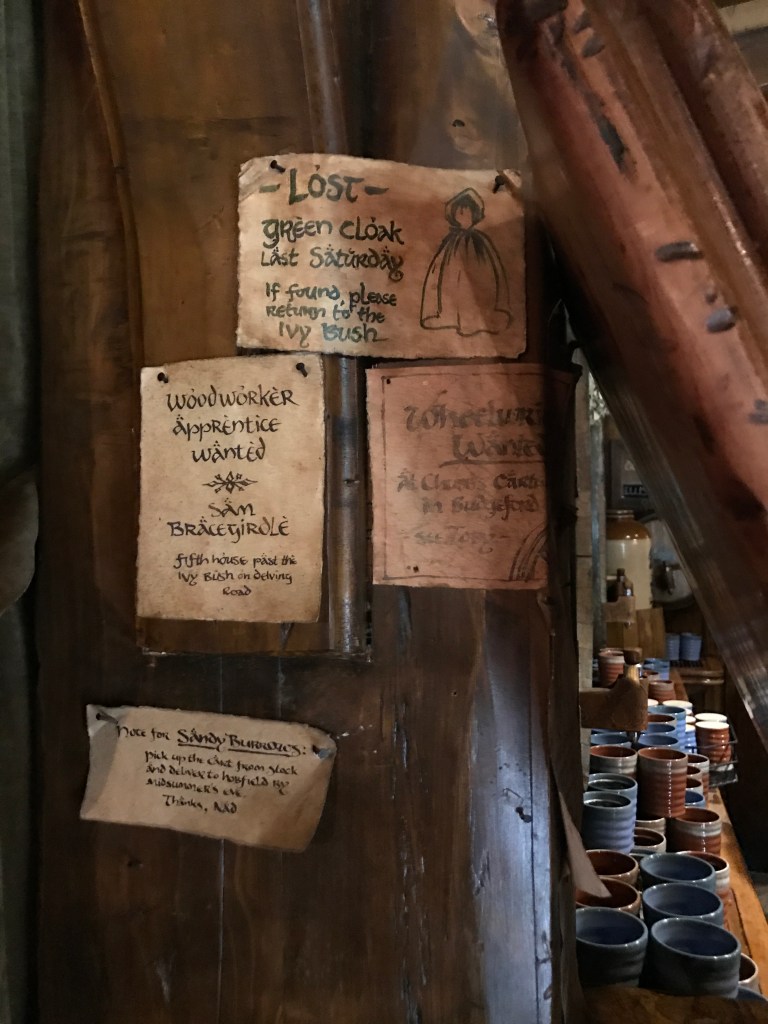 - Lost -
Green Cloak
Last Saturday
If found, please
return to the
Ivy Bush
Woodworker
Apprentice
Wanted
Sam
Bracegirdle
Fifth house past the
Ivy Bush on Delving
Road
Wanted
in Budgeford
- See Tom -
Note for Sandy Burrows:
Pick up the cart from Stock
and deliver to
Midsummer's Eve
Thanks,